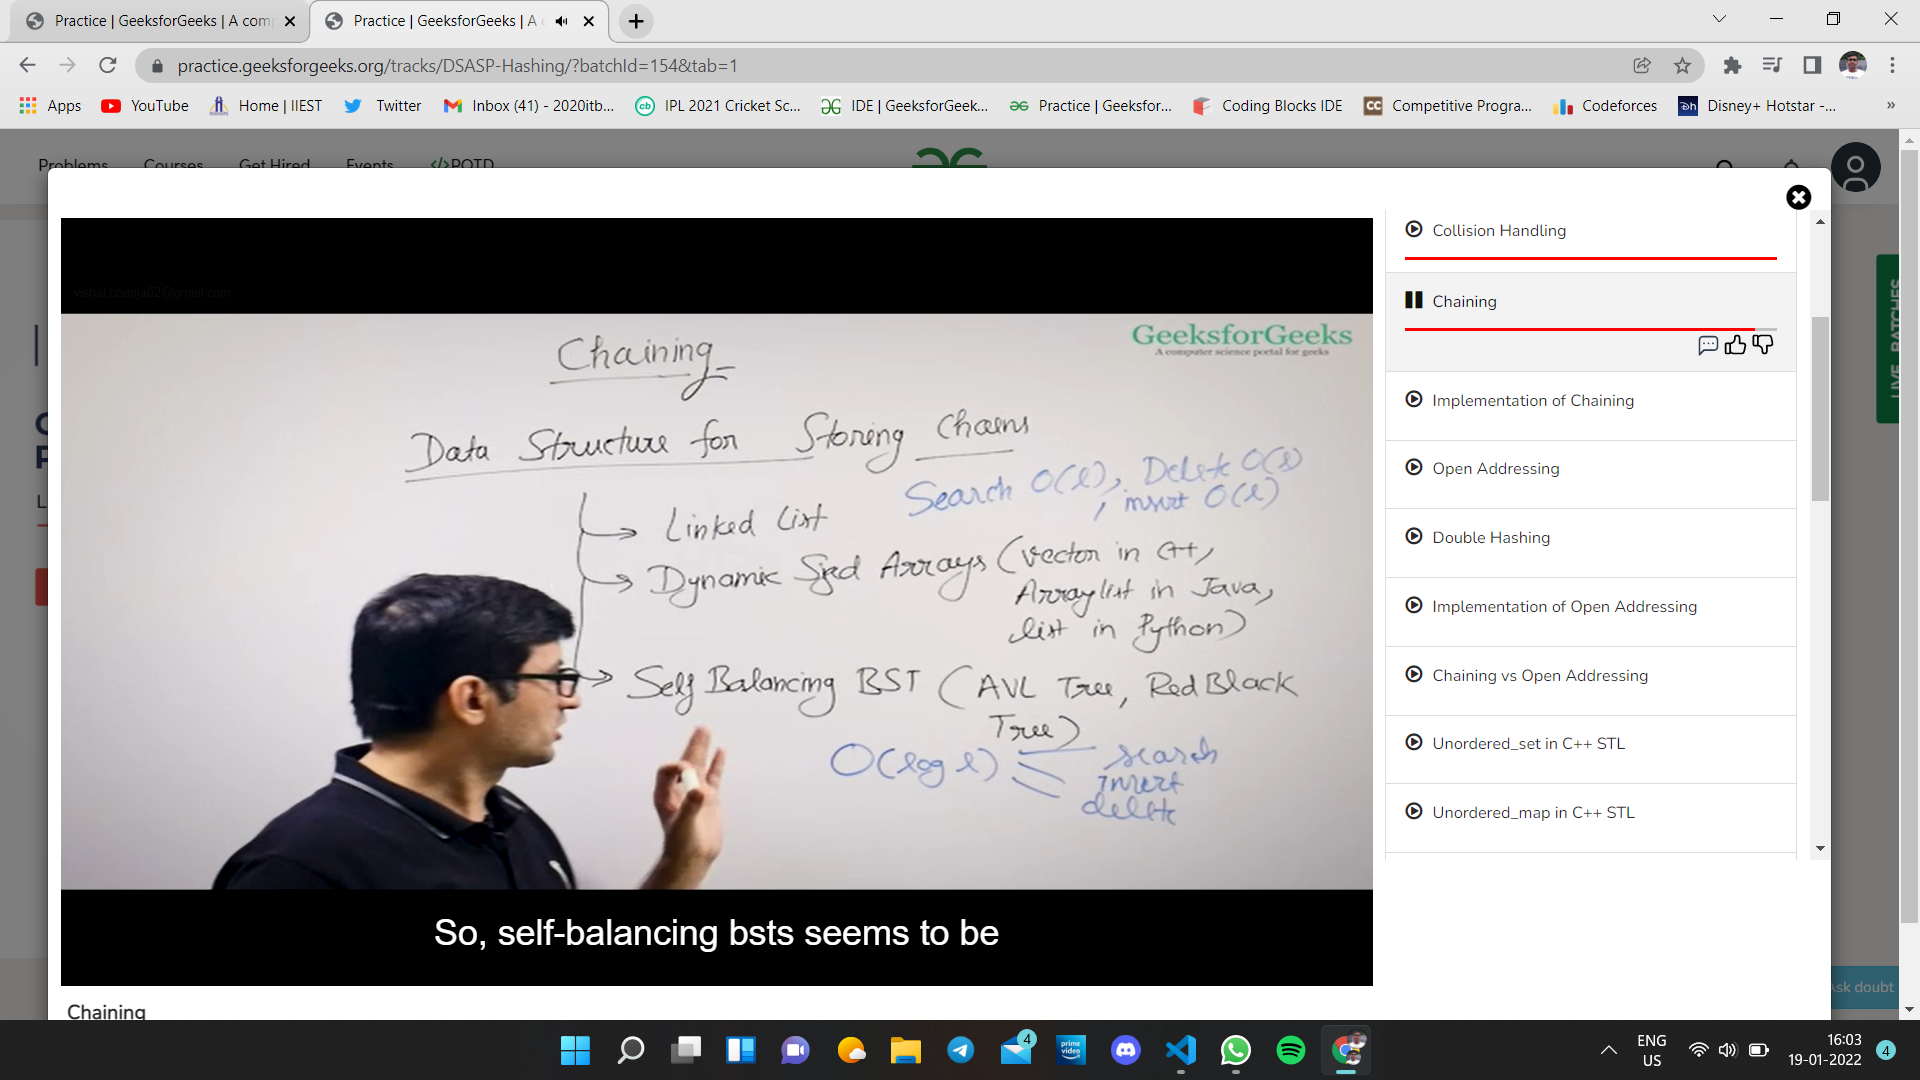 Practice | GeeksforGeeks | A com
Practice | GeeksforGeeks | A c
practice.geeksforgeeks.org/tracks/DSASP-Hashing/?batchId=154&tab=1
Apps
YouTube
Home | IIEST
Twitter
Inbox (41) - 2020itb...
IPL 2021 Cricket Sc...
IDE | GeeksforGeek...
Practice | Geeksfor...
Coding Blocks IDE
Competitive Progra...
Codeforces
Disney+ Hotstar -...
»
Problems
Courses
Get Hired
Events
</>POTD
LIVE BATCHES
vishal.bhanja02@gmail.com
GeeksforGeeks
A computer science portal for geeks
Chaining
Data Structure for Storing Chains
Search O(l), Delete O(l)
, insert O(l)
Linked List
Dynamic Sized Arrays (vector in C++,
ArrayList in Java,
list in Python)
Self Balancing BST (AVL Tree, Red Black
Tree)
O(log l)
search
insert
delete
So, self-balancing bsts seems to be
Chaining
Collision Handling
Chaining
Implementation of Chaining
Open Addressing
Double Hashing
Implementation of Open Addressing
Chaining vs Open Addressing
Unordered_set in C++ STL
Unordered_map in C++ STL
Ask doubt
4
prime video
ENG
US
16:03
19-01-2022
4